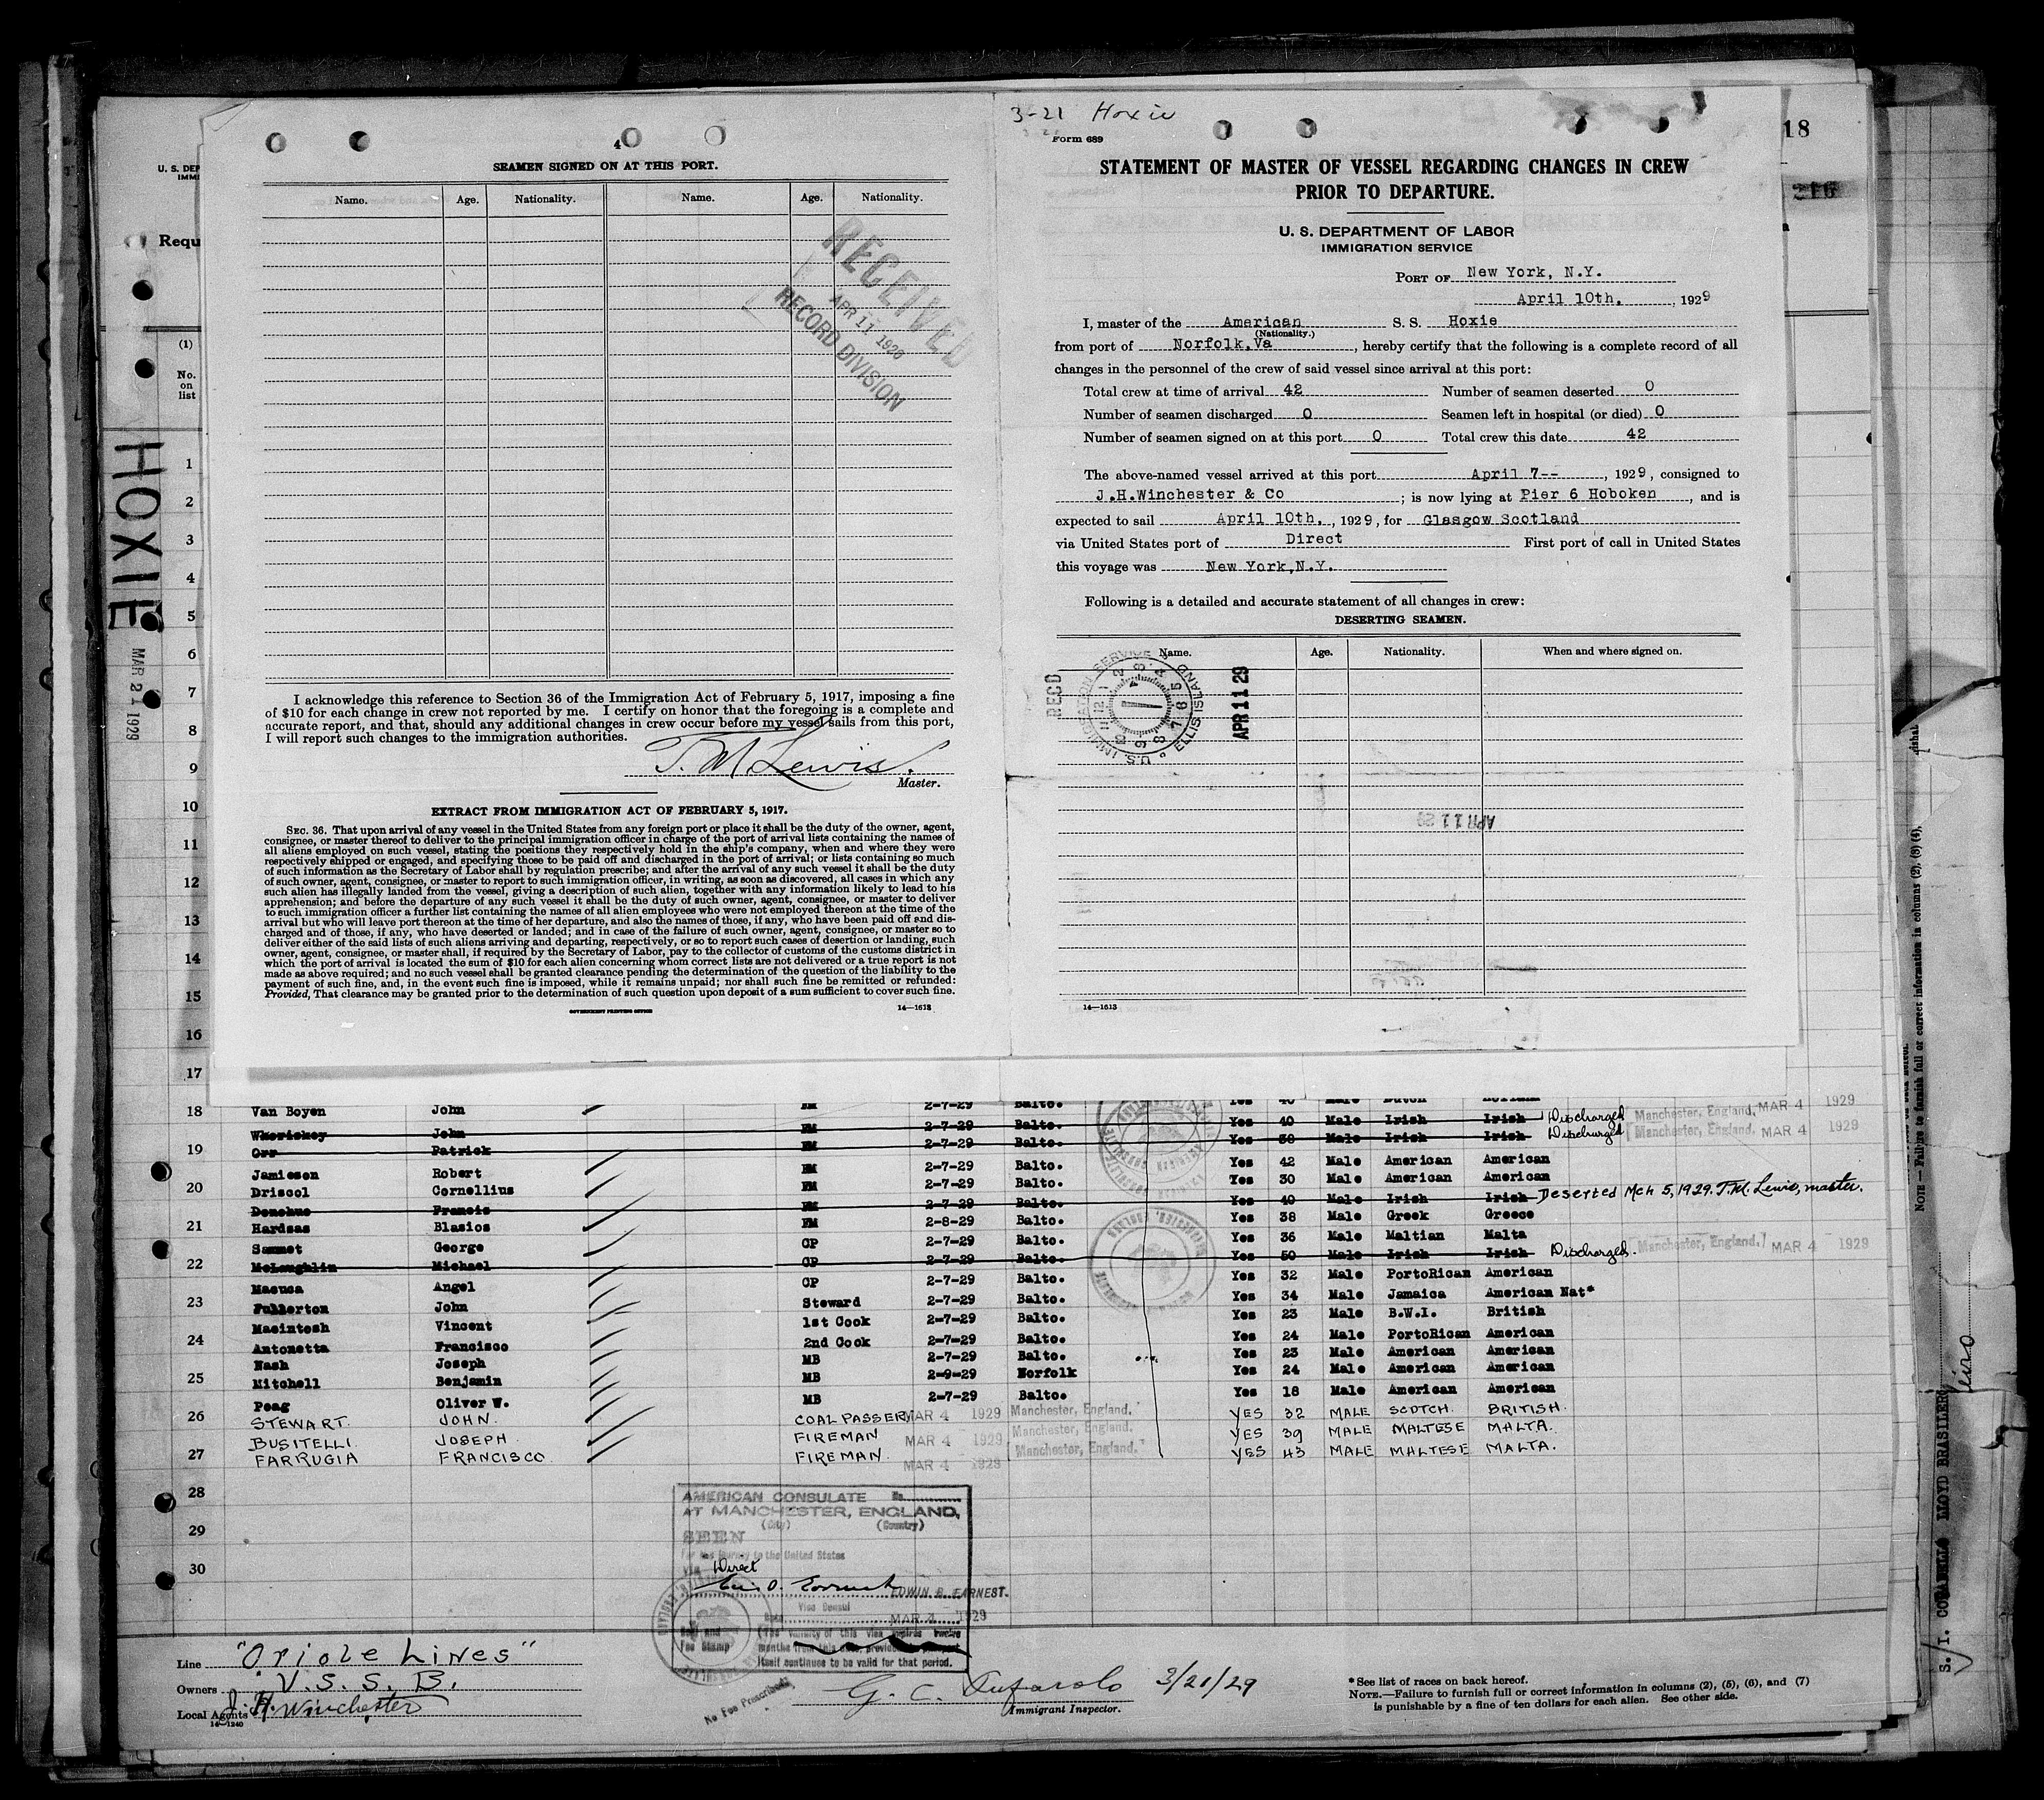 4
SEAMEN SIGNED ON AT THIS PORT.
Name. Age. Nationality. Name. Age. Nationality.
RECEIVED
APR 11 1929
RECORD DIVISION
I acknowledge this reference to Section 36 of the Immigration Act of February 5, 1917, imposing a fine
of $10 for each change in crew not reported by me. I certify on honor that the foregoing is a complete and
accurate report, and that, should any additional changes in crew occur before my vessel sails from this port,
I will report such changes to the immigration authorities.
T. M. Lewis.
Master.
EXTRACT FROM IMMIGRATION ACT OF FEBRUARY 5, 1917.
SEC. 36. That upon arrival of any vessel in the United States from any foreign port or place it shall be the duty of the owner, agent,
consignee, or master thereof to deliver to the principal immigration officer in charge of the port of arrival lists containing the names of
all aliens employed on such vessel, stating the positions they respectively hold in the ship's company, when and where they were
respectively shipped or engaged, and specifying those to be paid off and discharged in the port of arrival; or lists containing so much
of such information as the Secretary of Labor shall by regulation prescribe; and after the arrival of any such vessel it shall be the duty
of such owner, agent, consignee, or master to report to such immigration officer, in writing, as soon as discovered, all cases in which any
such alien has illegally landed from the vessel, giving a description of such alien, together with any information likely to lead to his
apprehension; and before the departure of any such vessel it shall be the duty of such owner, agent, consignee, or master to deliver
to such immigration officer a further list containing the names of all alien employees who were not employed thereon at the time of the
arrival but who will leave port thereon at the time of her departure, and also the names of those, if any, who have been paid off and dis-
charged and of those, if any, who have deserted or landed; and in case of the failure of such owner, agent, consignee, or master so to
deliver either of the said lists of such aliens arriving and departing, respectively, or so to report such cases of desertion or landing, such
owner, agent, consignee, or master shall, if required by the Secretary of Labor, pay to the collector of customs of the customs district in
which the port of arrival is located the sum of $10 for each alien concerning whom correct lists are not delivered or a true report is not
made as above required; and no such vessel shall be granted clearance pending the determination of the question of the liability to the
payment of such fine, and, in the event such fine is imposed, while it remains unpaid; nor shall such fine be remitted or refunded:
Provided, That clearance may be granted prior to the determination of such question upon deposit of a sum sufficient to cover such fine.
GOVERNMENT PRINTING OFFICE
14—1613
3-21 Hoxie
Form 689
STATEMENT OF MASTER OF VESSEL REGARDING CHANGES IN CREW
PRIOR TO DEPARTURE.
U. S. DEPARTMENT OF LABOR
IMMIGRATION SERVICE
PORT OF New York, N.Y.
April 10th, 1929
I, master of the American S. S. Hoxie
(Nationality.)
from port of Norfolk, Va, hereby certify that the following is a complete record of all
changes in the personnel of the crew of said vessel since arrival at this port:
Total crew at time of arrival 42 Number of seamen deserted 0
Number of seamen discharged 0 Seamen left in hospital (or died) 0
Number of seamen signed on at this port 0 Total crew this date 42
The above-named vessel arrived at this port April 7--, 1929, consigned to
J.H.Winchester & Co; is now lying at Pier 6 Hoboken, and is
expected to sail April 10th., 1929, for Glasgow Scotland
via United States port of Direct First port of call in United States
this voyage was New York,N.Y.
Following is a detailed and accurate statement of all changes in crew:
DESERTING SEAMEN.
Name. Age. Nationality. When and where signed on.
REC'D
U.S. IMMIGRATION SERVICE ELLIS ISLAND
APR 11 29
APR 11 29
14—1613
18
216
U. S. DEP
IMMI
Requ
(1)
No.
on
list
HOXIE
MAR 21 1929
1
2
3
4
5
6
7
8
9
10
11
12
13
14
15
16
17
18
19
20
21
22
23
24
25
26
27
28
29
30
Van Boyen John FM 2-7-29 Balto. Yes 40 Male Dutch Holland
Whoriskey John FM 2-7-29 Balto. Yes 40 Male Irish Irish Discharged Manchester, England, MAR 4 1929
Orr Patrick FM 2-7-29 Balto. Yes 38 Male Irish Irish Discharged Manchester, England. MAR 4 1929
Jamieson Robert FM 2-7-29 Balto. Yes 42 Male American American
Driscol Cornellius FM 2-7-29 Balto. Yes 30 Male American American
Donohue Francis FM 2-7-29 Balto. Yes 40 Male Irish Irish Deserted Mch 5, 1929. T.M. Lewis, master.
Hardsas Blasios FM 2-8-29 Balto. Yes 38 Male Greek Greece
Sammet George CP 2-7-29 Balto. Yes 36 Male Maltian Malta
McLaughlin Michael CP 2-7-29 Balto. Yes 50 Male Irish Irish Discharged. Manchester, England. MAR 4 1929
Macuca Angel CP 2-7-29 Balto. Yes 32 Male PortoRican American
Fullerton John Steward 2-7-29 Balto. Yes 34 Male Jamaica American Nat*
Macintosh Vincent 1st Cook 2-7-29 Balto. Yes 23 Male B.W.I. British
Antonetta Francisco 2nd Cook 2-7-29 Balto. Yes 24 Male PortoRican American
Nash Joseph MB 2-7-29 Balto. Yes 23 Male American American
Mitchell Benjamin MB 2-9-29 Norfolk Yes 24 Male American American
Peag Oliver W. MB 2-7-29 Balto. Yes 18 Male American American
STEWART. JOHN. COAL PASSER MAR 4 1929 Manchester, England. YES 32 MALE SCOTCH. BRITISH.
BUSITELLI. JOSEPH. FIREMAN MAR 4 1929 Manchester, England. YES 39 MALE MALTESE MALTA.
FARRUGIA FRANCISCO FIREMAN. MAR 4 1929 Manchester, England. YES 43 MALE MALTESE MALTA.
AMERICAN CONSULATE No.
AT MANCHESTER, ENGLAND,
(City) (Country)
SEEN
For the journey to the United States
via Direct
EDWIN B. EARNEST.
Vice Consul
Date MAR 4 1929
Seal and
Fee Stamp
(The validity of this visa expires twelve
months from this date, provided the passport
itself continues to be valid for that period.
No Fee Prescribed.
Line "Oriole Lines"
Owners U.S.S.B.
Local Agents J. H. Winchester
14—1240
G. C. Tufarolo 3/20/29
Immigrant Inspector.
*See list of races on back hereof.
NOTE.—Failure to furnish full or correct information in columns (2), (5), (6), and (7)
is punishable by a fine of ten dollars for each alien. See other side.
NOTE — Failure to furnish full or correct information in columns (2), (3) (4),
LLOYD BRASILEIRO